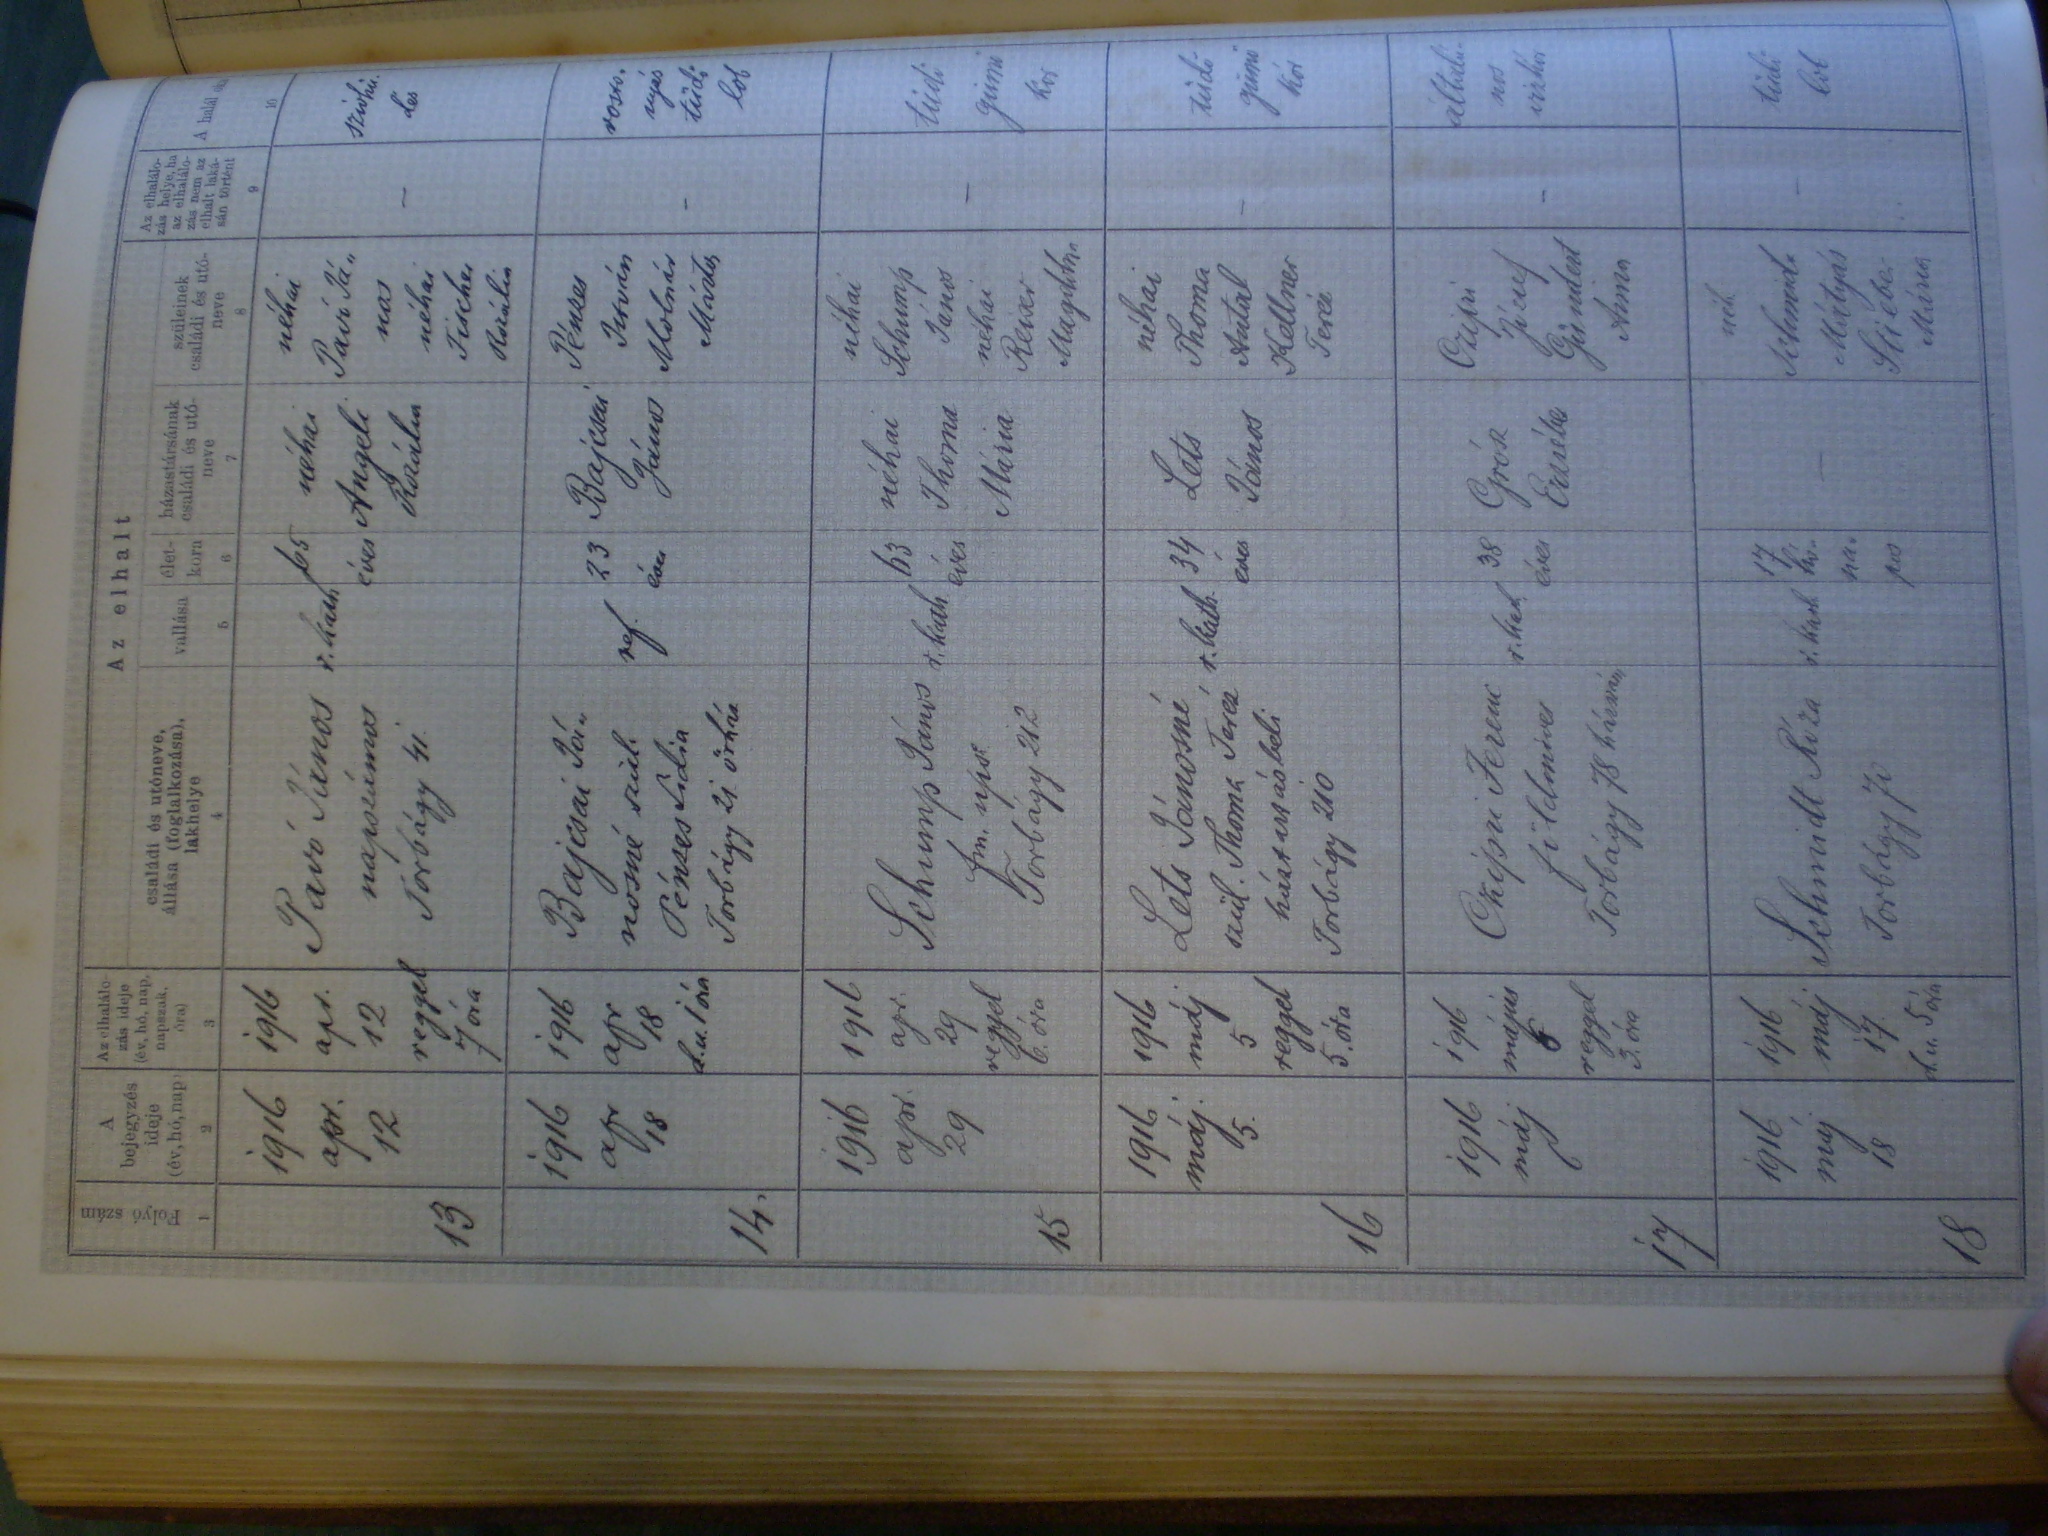 Az elhalt
Folyó szám
A bejegyzés ideje (év, hó, nap)
Az elhalálo-
zás ideje
(év, hó, nap,
napszak,
óra)
családi és utóneve,
állása (foglalkozása),
lakhelye
vallása
élet-
kora
házastársának
családi és utó-
neve
szüleinek
családi és utó-
neve
Az elhaláló-
zás helye, ha
az elhaláló-
zás nem az
elhalt laká-
sán történt
A halál
1 2 3 4 5 6 7 8 9 10
13
1916
apr.
12
1916
apr.
12
reggel
7 óra
Pavó János
napszámos
Torbágy 41.
r. kath
65
éves
néhai
Angeli
Rozália
néhai
Pavó Já„
nos
néhai
Fischer
Rozália
–
szívhű-
dés
14.
1916
apr
18
1916
apr
18
d. u. 1 óra
Bajcsai Já„
nosné szül.
Pénzes Lidia
Torbágy 21 őrház
ref.
23
éves
Bajcsai
János
Pénzes
István
Molnár
Márta
–
tüdő
lob
15
1916
apr.
29
1916
apr.
29
reggel
6. óra
Schump János
fm. nps.
Torbágy 212
r. kath
63
éves
néhai
Thoma
Mária
néhai
Schump
János
néhai
Reiser
Magdolna
–
tüdő
gümő
kór
16
1916
máj.
5.
1916
máj
5
reggel
5. óra
Lets Jánosné
szül. Thoma Teréz
háztartásbeli
Torbágy 210
r. kath.
34
éves
Lets
János
néhai
Thoma
Antal
Kellner
Teréz
–
tüdő
gümő
kór
17
1916
máj
1916
május
6
reggel
3. óra
Czipri Ferenc
földmíves
Torbágy 78 házszám
r. kath
38
éves
Grósz
Erzsébet
Czipri
József
Gindert
Anna
–
általá-
nos
vízkór
18
1916
máj
18
1916
máj
17.
d. u. 5 óra
Schmidt Róza
Torbágy
r. kath
17
hó-
na-
pos
–
Schmidt
Mátyás
Stiber
Mária
–
tüdő
lob